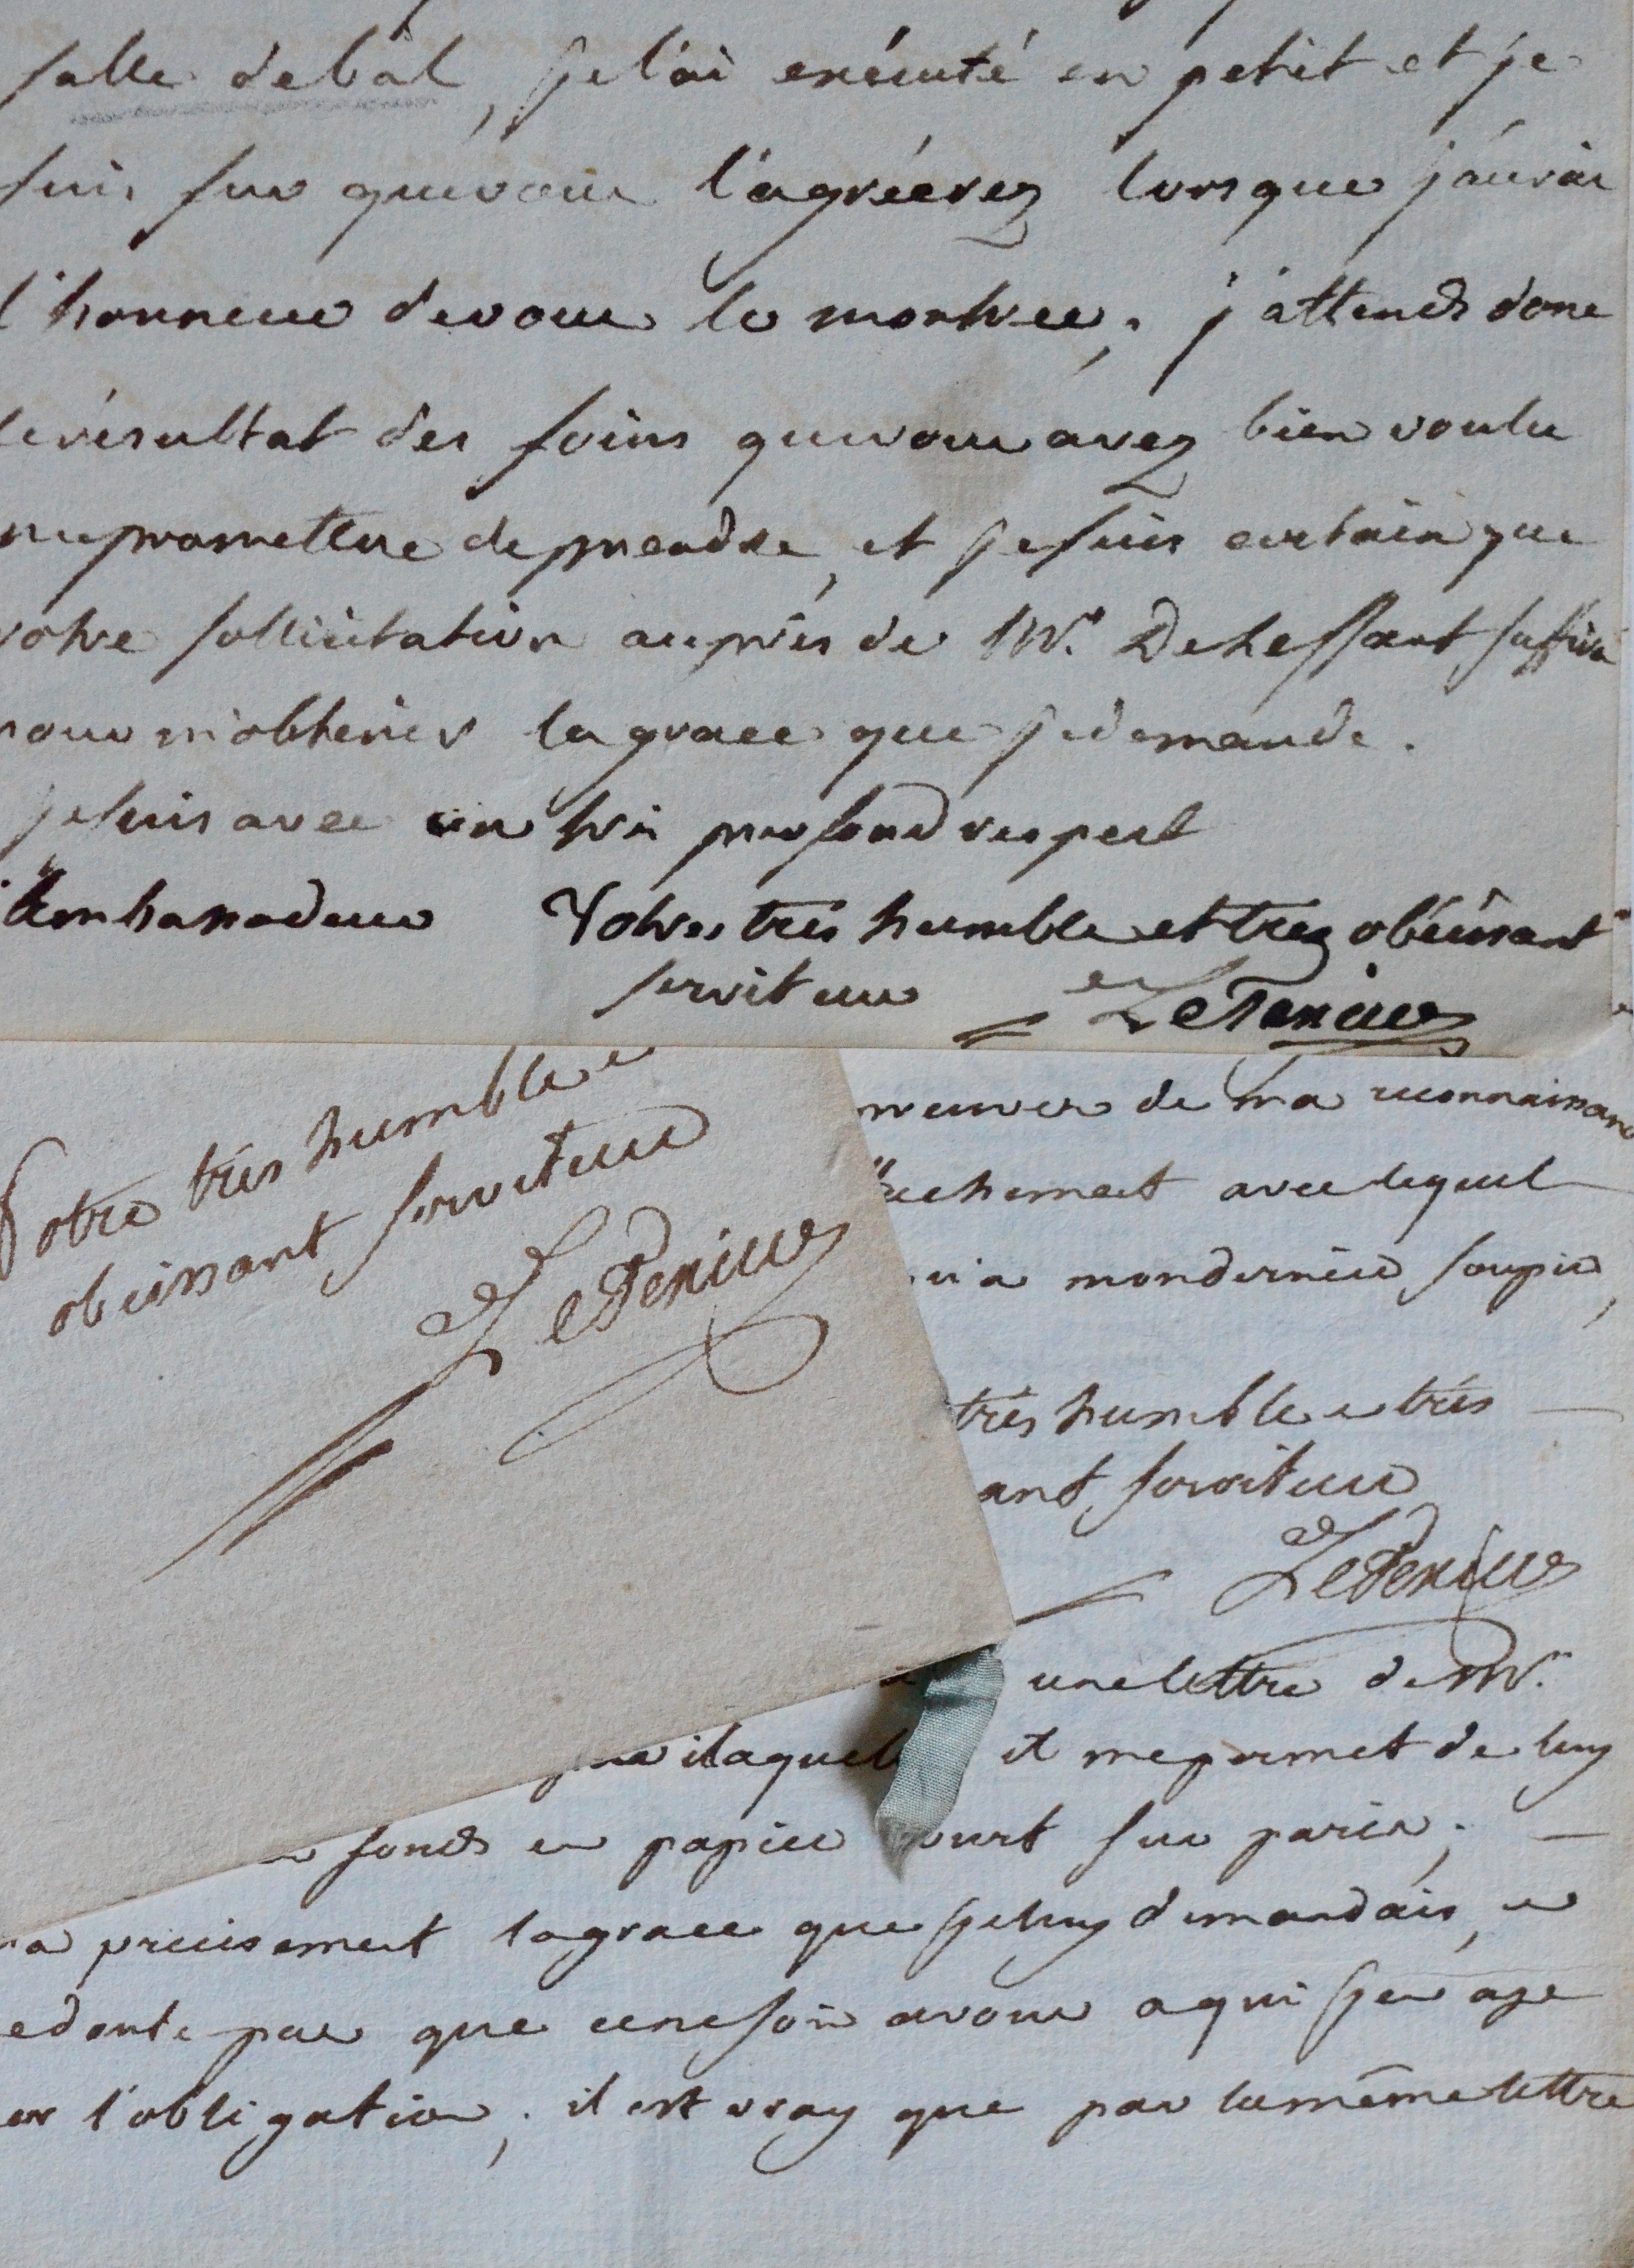 salle debal, jel'ai exécuté en petit et je
suis sur quevous l'agréerez lorsque j'aurai
l'honneur devous le montrer; j'attends donc
lerésultat des soins quevous avez bien voulu
mepromettre deprendre, et jesuis certain que
votre sollicitation auprés de Mr. De Lessart suffira
pour m'obtenir la grace que jedemande.
jesuis avec un trés profond respect
Ambassadeur Votre trés humble et trez obéissant
serviteur LeTexier
Votre trés humble et
obeissant serviteur
LeTexier
preuves de ma reconnaissance
avec lequel
mondernier soupir,
trés humble et trés
serviteur
LeTexier
une lettre de Mr.
il mepermet de luy
fonds en papier court sur paris;
precisement lagrace que jeluy demandais, et
pas que cenesoit avous aqui j'en aye
l'obligation; il est vray que par lamême lettre